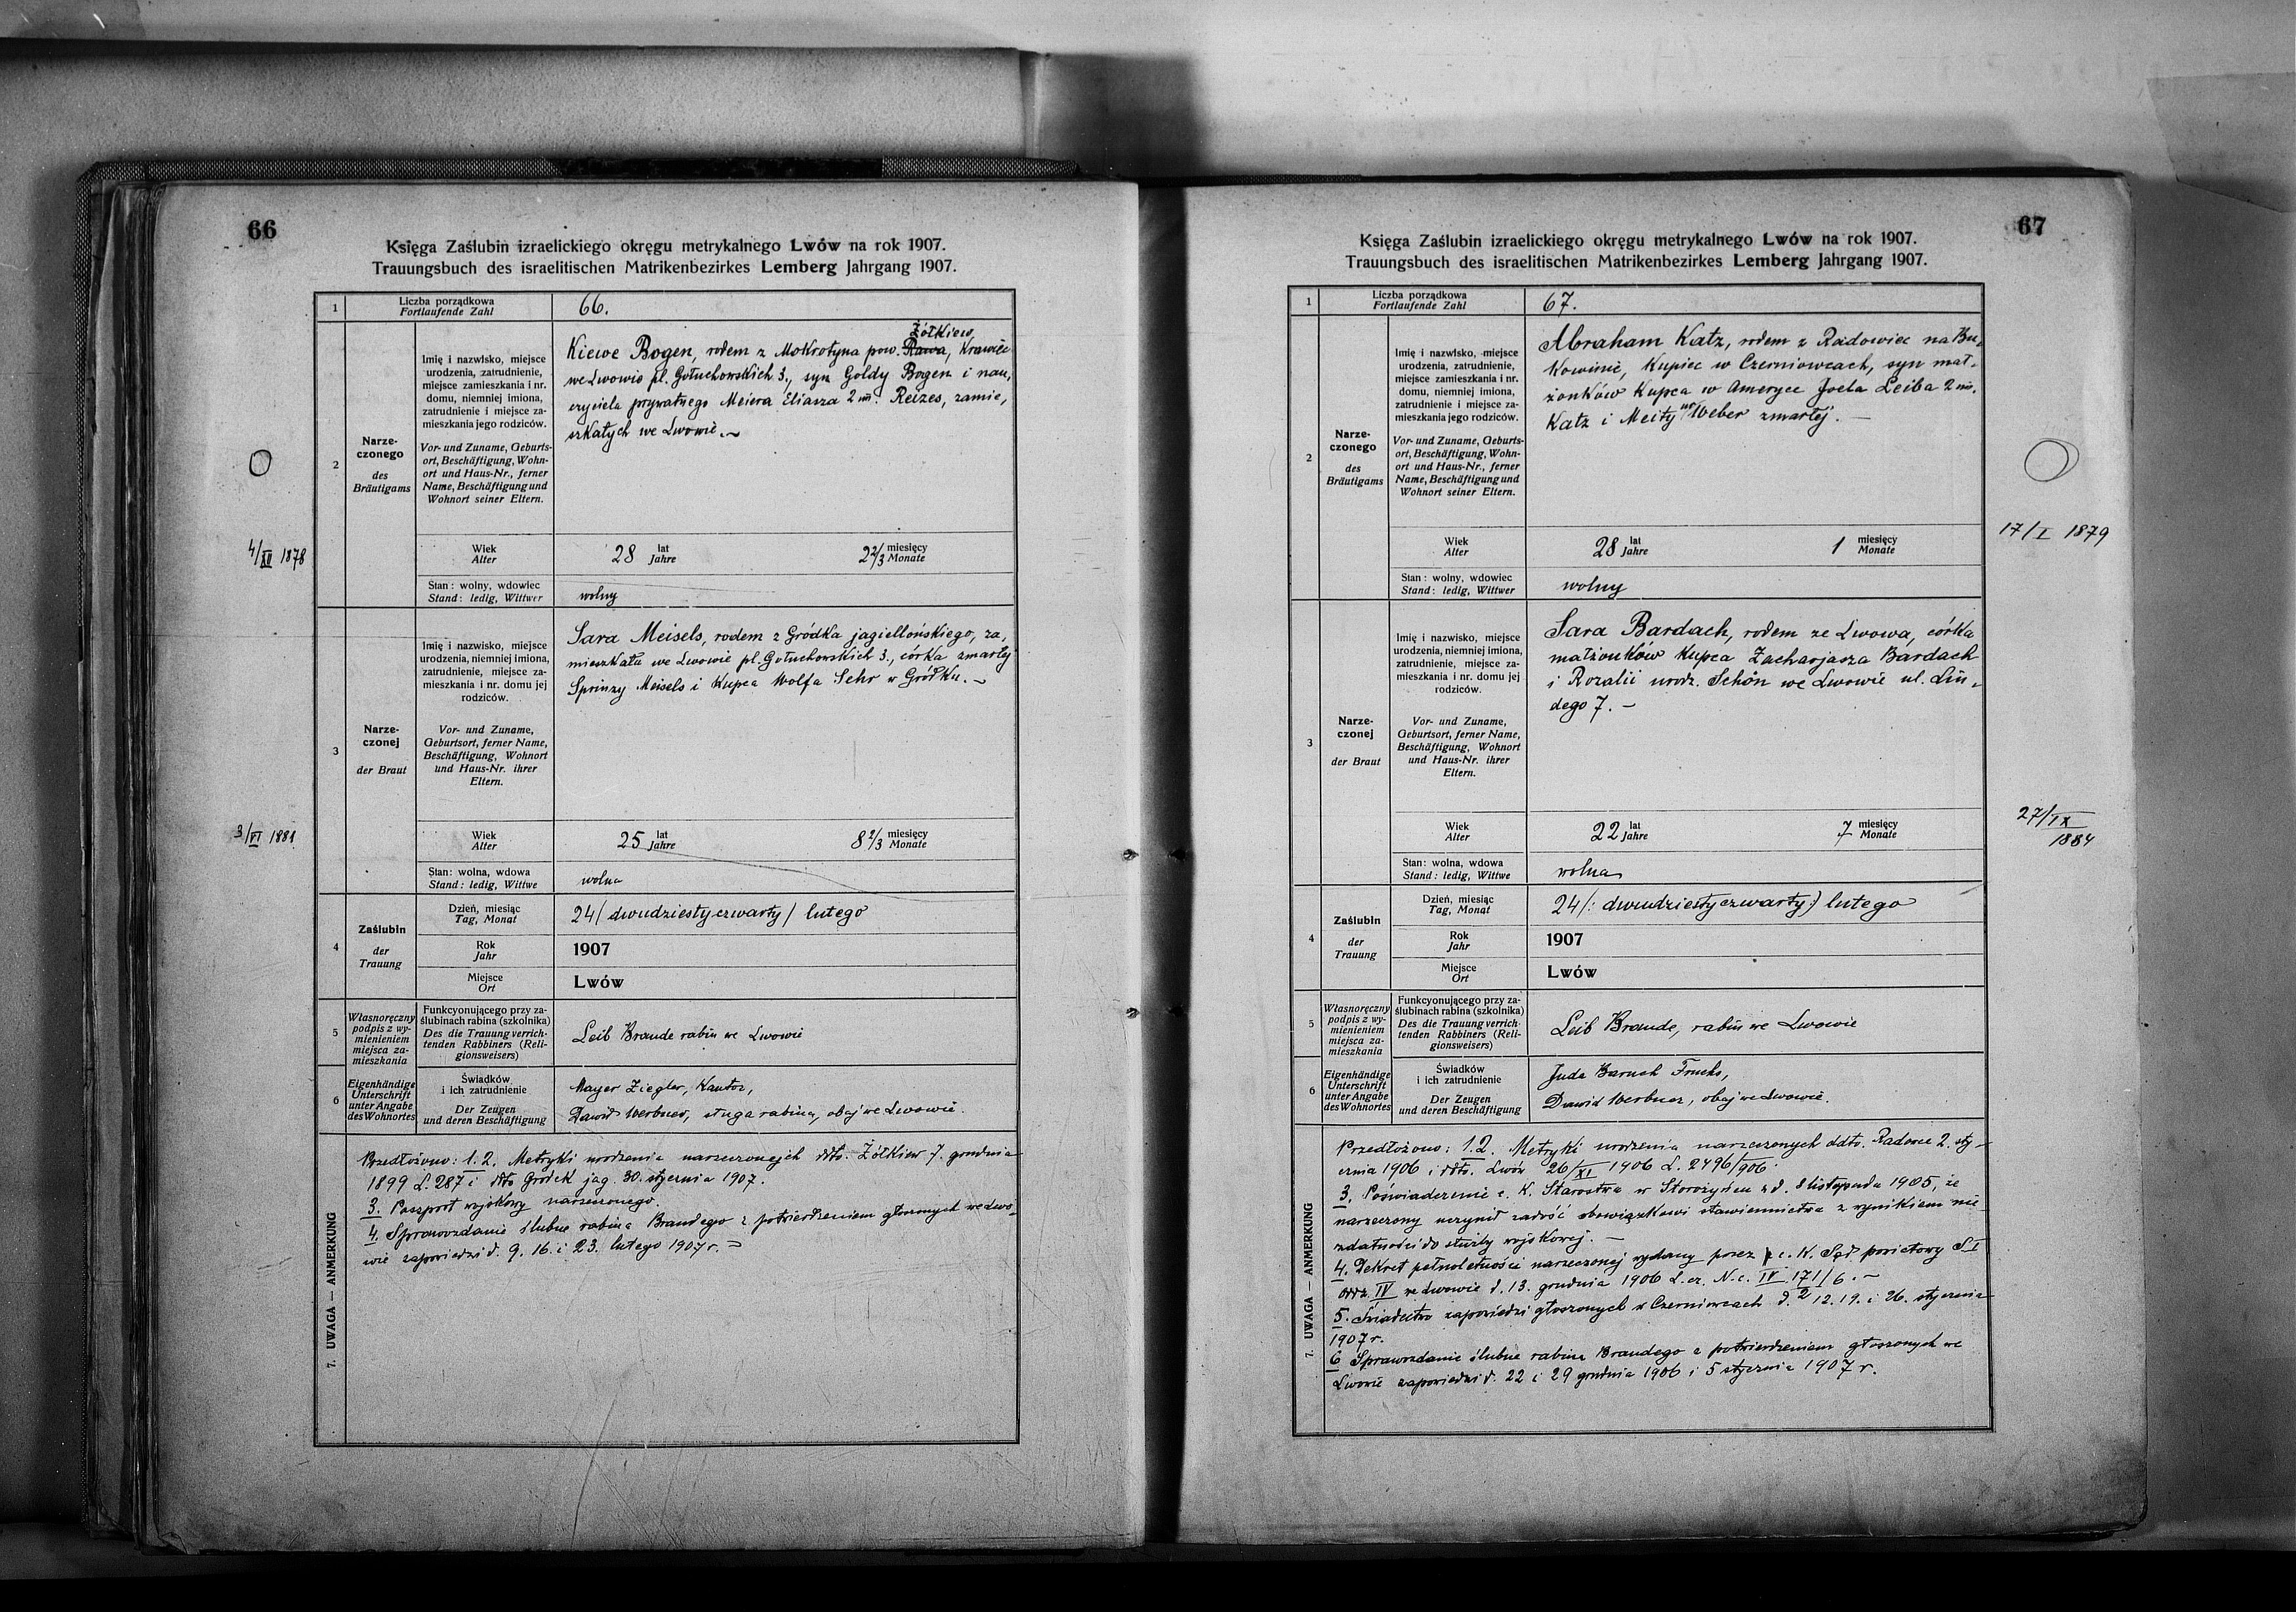 66
Księga Zaślubin izraelickiego okręgu metrykalnego Lwów na rok 1907.
Trauungsbuch des israelitischen Matrikenbezirkes Lemberg Jahrgang 1907.
1
Liczba porządkowa
Fortlaufende Zahl
66.
2
Narze-
czonego
des
Bräutigams
Imię i nazwisko, miejsce
urodzenia, zatrudnienie,
miejsce zamieszkania i nr.
domu, niemniej imiona,
zatrudnienie i miejsce za-
mieszkania jego rodziców.
Vor- und Zuname, Geburts-
ort, Beschäftigung, Wohn-
ort und Haus-Nr., ferner
Name, Beschäftigung und
Wohnort seiner Eltern.
Żółkiew
Kiewe Bogen, rodem z Mokrotyna pow. Rawa, Krawiec
we Lwowie pl. Gołuchowskich 3., syn Goldy Bogen i nau,
czyciela prywatnego Meiera Eliasza 2 im. Reizes, zamie,
szkałych we Lwowie.
4/XII 1878
Wiek
Alter
28 lat
Jahre
2 2/3 miesięcy
Monate
Stan: wolny, wdowiec
Stand: ledig, Wittwer
wolny
3
Narze-
czonej
der Braut
Imię i nazwisko, miejsce
urodzenia, niemniej imiona,
zatrudnienie, miejsce za-
mieszkania i nr. domu jej
rodziców.
Vor- und Zuname,
Geburtsort, ferner Name,
Beschäftigung, Wohnort
und Haus-Nr. ihrer
Eltern.
Sara Meisels, rodem z Gródka jagiellońskiego, za,
mieszkała we Lwowie pl. Gołuchowskich 3., córka zmarłej
Sprinzy Meisels i Kupca Wolfa Sehr w Gródku.
3/VI 1881
Wiek
Alter
25 lat
Jahre
8 2/3 miesięcy
Monate
Stan: wolna, wdowa
Stand: ledig, Wittwe
wolna
4
Zaślubin
der
Trauung
Dzień, miesiąc
Tag, Monat
24 (dwudziestyczwarty) lutego
Rok
Jahr
1907
Miejsce
Ort
Lwów
5
Własnoręczny
podpis z wy-
mienieniem
miejsca za-
mieszkania
Funkcyonującego przy za-
ślubinach rabina (szkolnika)
Des die Trauung verrich-
tenden Rabbiners (Reli-
gionsweisers)
Leib Braude rabin we Lwowie
6
Eigenhändige
Unterschrift
unter Angabe
des Wohnortes
Świadków
i ich zatrudnienie
Der Zeugen
und deren Beschäftigung
Mayer Ziegler, Kantor,
Dawid Werbner, sługa rabina, obaj we Lwowie.
7. UWAGA — ANMERKUNG
Przedłożono: 1. 2. Metryki urodzenia narzeczonych ddto. Żółkiew 7. grudnia
1899 L. 287 i ddto Gródek jag. 30. stycznia 1907.
3. Paszport wojskowy narzeczonego.
4. Sprawozdanie ślubne rabina Braudego z potwierdzeniem głoszonych we Lwo-
wie zapowiedzi d. 9. 16. i 23. lutego 1907 r.
67
Księga Zaślubin izraelickiego okręgu metrykalnego Lwów na rok 1907.
Trauungsbuch des israelitischen Matrikenbezirkes Lemberg Jahrgang 1907.
1
Liczba porządkowa
Fortlaufende Zahl
67.
2
Narze-
czonego
des
Bräutigams
Imię i nazwisko, miejsce
urodzenia, zatrudnienie,
miejsce zamieszkania i nr.
domu, niemniej imiona,
zatrudnienie i miejsce za-
mieszkania jego rodziców.
Vor- und Zuname, Geburts-
ort, Beschäftigung, Wohn-
ort und Haus-Nr., ferner
Name, Beschäftigung und
Wohnort seiner Eltern.
Abraham Katz, rodem z Radowiec na Bu,
kowinie, Kupiec w Czerniowcach, syn mał,
żonków Kupca w Ameryce Joela Leiba 2 im.
Katz i Meity ur. Weber zmarłej.
Wiek
Alter
28 lat
Jahre
1 miesięcy
Monate
17/I 1879
Stan: wolny, wdowiec
Stand: ledig, Wittwer
wolny
3
Narze-
czonej
der Braut
Imię i nazwisko, miejsce
urodzenia, niemniej imiona,
zatrudnienie, miejsce za-
mieszkania i nr. domu jej
rodziców.
Vor- und Zuname,
Geburtsort, ferner Name,
Beschäftigung, Wohnort
und Haus-Nr. ihrer
Eltern.
Sara Bardach, rodem ze Lwowa, córka
małżonków Kupca Zacharjasza Bardach
i Rozalii urodz. Schön we Lwowie ul. Lin,
dego 7.
Wiek
Alter
22 lat
Jahre
7 miesięcy
Monate
27/IX
1884
Stan: wolna, wdowa
Stand: ledig, Wittwe
wolna
4
Zaślubin
der
Trauung
Dzień, miesiąc
Tag, Monat
24 /: dwudziestyczwarty :/ lutego
Rok
Jahr
1907
Miejsce
Ort
Lwów
5
Własnoręczny
podpis z wy-
mienieniem
miejsca za-
mieszkania
Funkcyonującego przy za-
ślubinach rabina (szkolnika)
Des die Trauung verrich-
tenden Rabbiners (Reli-
gionsweisers)
Leib Braude, rabin we Lwowie
6
Eigenhändige
Unterschrift
unter Angabe
des Wohnortes
Świadków
i ich zatrudnienie
Der Zeugen
und deren Beschäftigung
Juda Baruch Fruchs,
Dawid Werbner, obaj we Lwowie.
7. UWAGA — ANMERKUNG
Przedłożono: 1. 2. Metryki urodzenia narzeczonych ddto. Radowce 2. sty-
cznia 1906 i ddto. Lwów 26/XI 1906 L. 2496/906.
3. Poświadczenie c. K. Starostwa w Storożyńcu z d. 8 listopada 1905, że
narzeczony uczynił zadość obowiązkowi stawiennictwa z wynikiem nie
zdatności do służby wojskowej.
4. Dekret pełnoletności narzeczonej wydany przez c. K. Sąd powiatowy S I
oddz. IV we Lwowie d. 13. grudnia 1906 L. cz. N. c. IV 171/6.
5. Świadectwo zapowiedzi głoszonych w Czerniowcach d. 12. 19. i 26. stycznia
1907 r.
6 Sprawozdanie ślubne rabina Braudego z potwierdzeniem głoszonych we
Lwowie zapowiedzi d. 22 i 29 grudnia 1906 i 5 stycznia 1907 r.